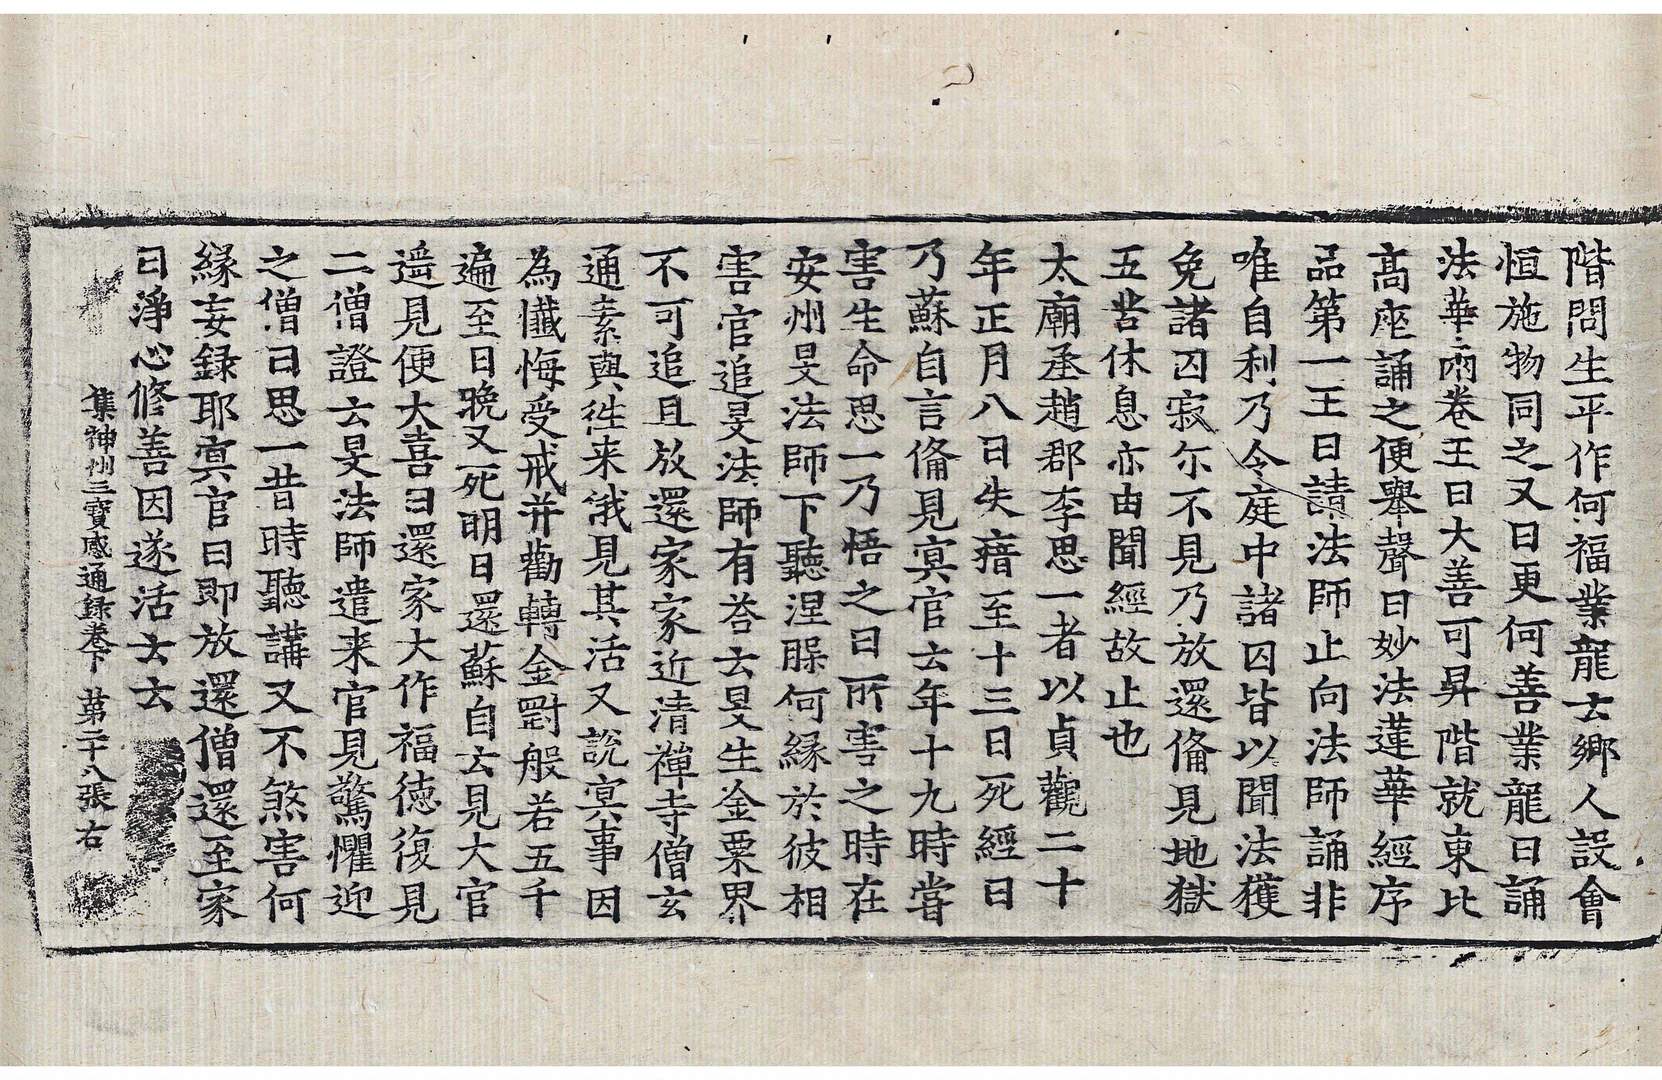 階問生平作何福業龍去鄉人設會
恒施物同之又曰更何善業龍曰誦
法華兩卷王曰大善可昇階就東北
高座誦之便舉聲曰妙法蓮華經序
品第一王曰請法師止向法師誦非
唯自利乃令庭中諸囚皆以聞法獲
免諸囚寂尔不見乃放還俻見地獄
五苦休息亦由聞經故止也
太廟丞趙郡李思一者以貞觀二十
年正月八日失瘖至十三日死經日
乃蘇自言俻見冥官云年十九時嘗
害生命思一乃悟之曰所害之時在
安州旻法師下聽涅槃何緣於彼相
害官追旻法師有荅云旻生金粟界
不可追且放還家家近清禪寺僧玄
通素與徃来俄見其活又說冥事因
為懺悔受戒并勸轉金剛般若五千
遍至日晚又死明日還蘇自云見大官
遥見便大喜曰還家大作福徳復見
二僧證云旻法師遣来官見驚懼迎
之僧曰思一昔時聽講又不煞害何
緣妄録耶冥官曰即放還僧還至家
曰淨心修善因遂活云云
集神州三寶感通録卷下 第二十八張 右